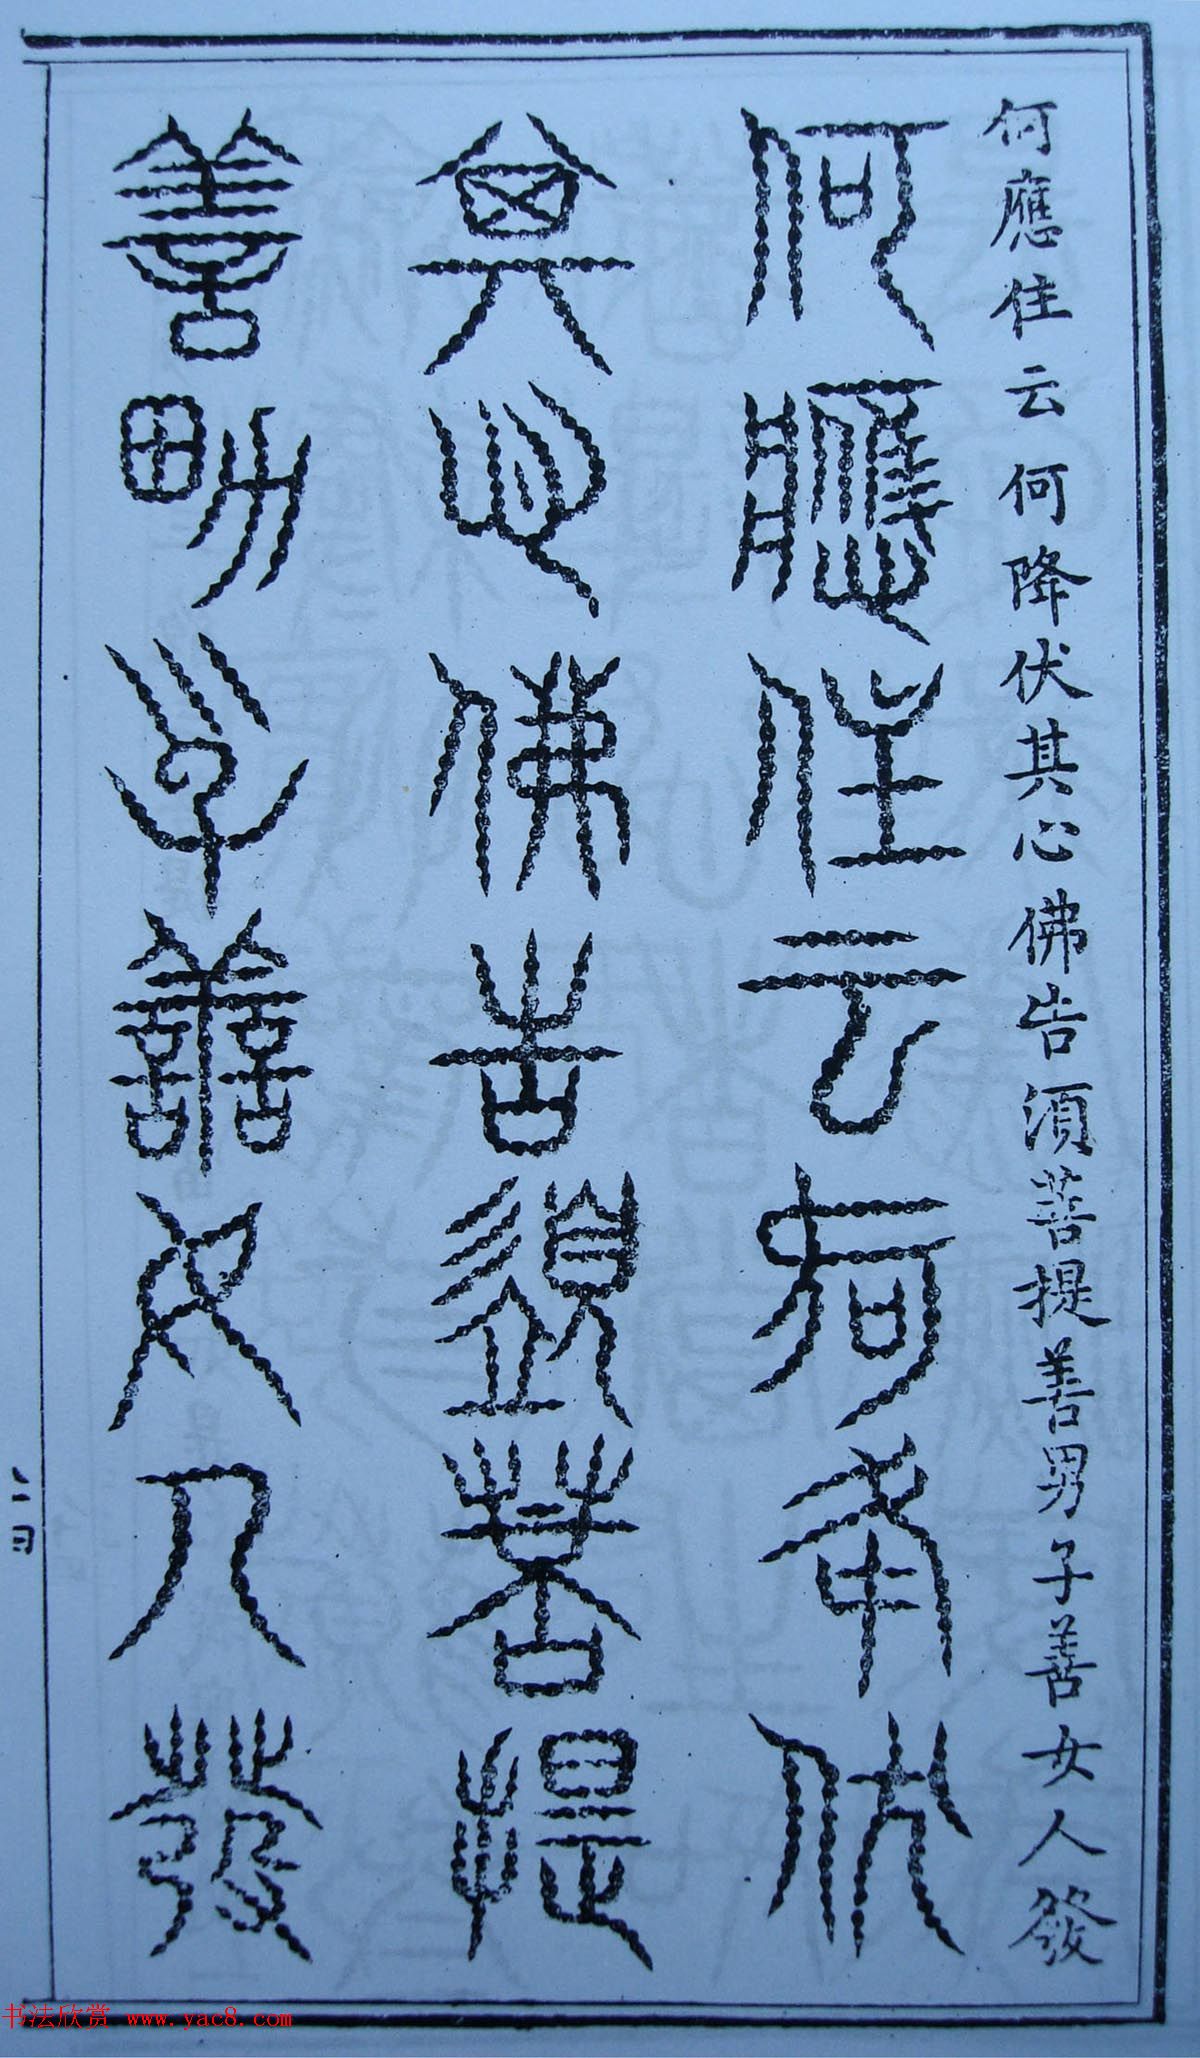 何應住云何降伏其心佛告須菩提善男子善女人發
何應住云何降伏
其心佛告須菩提
善男子善女人發
书法欣赏 www.yac8.com